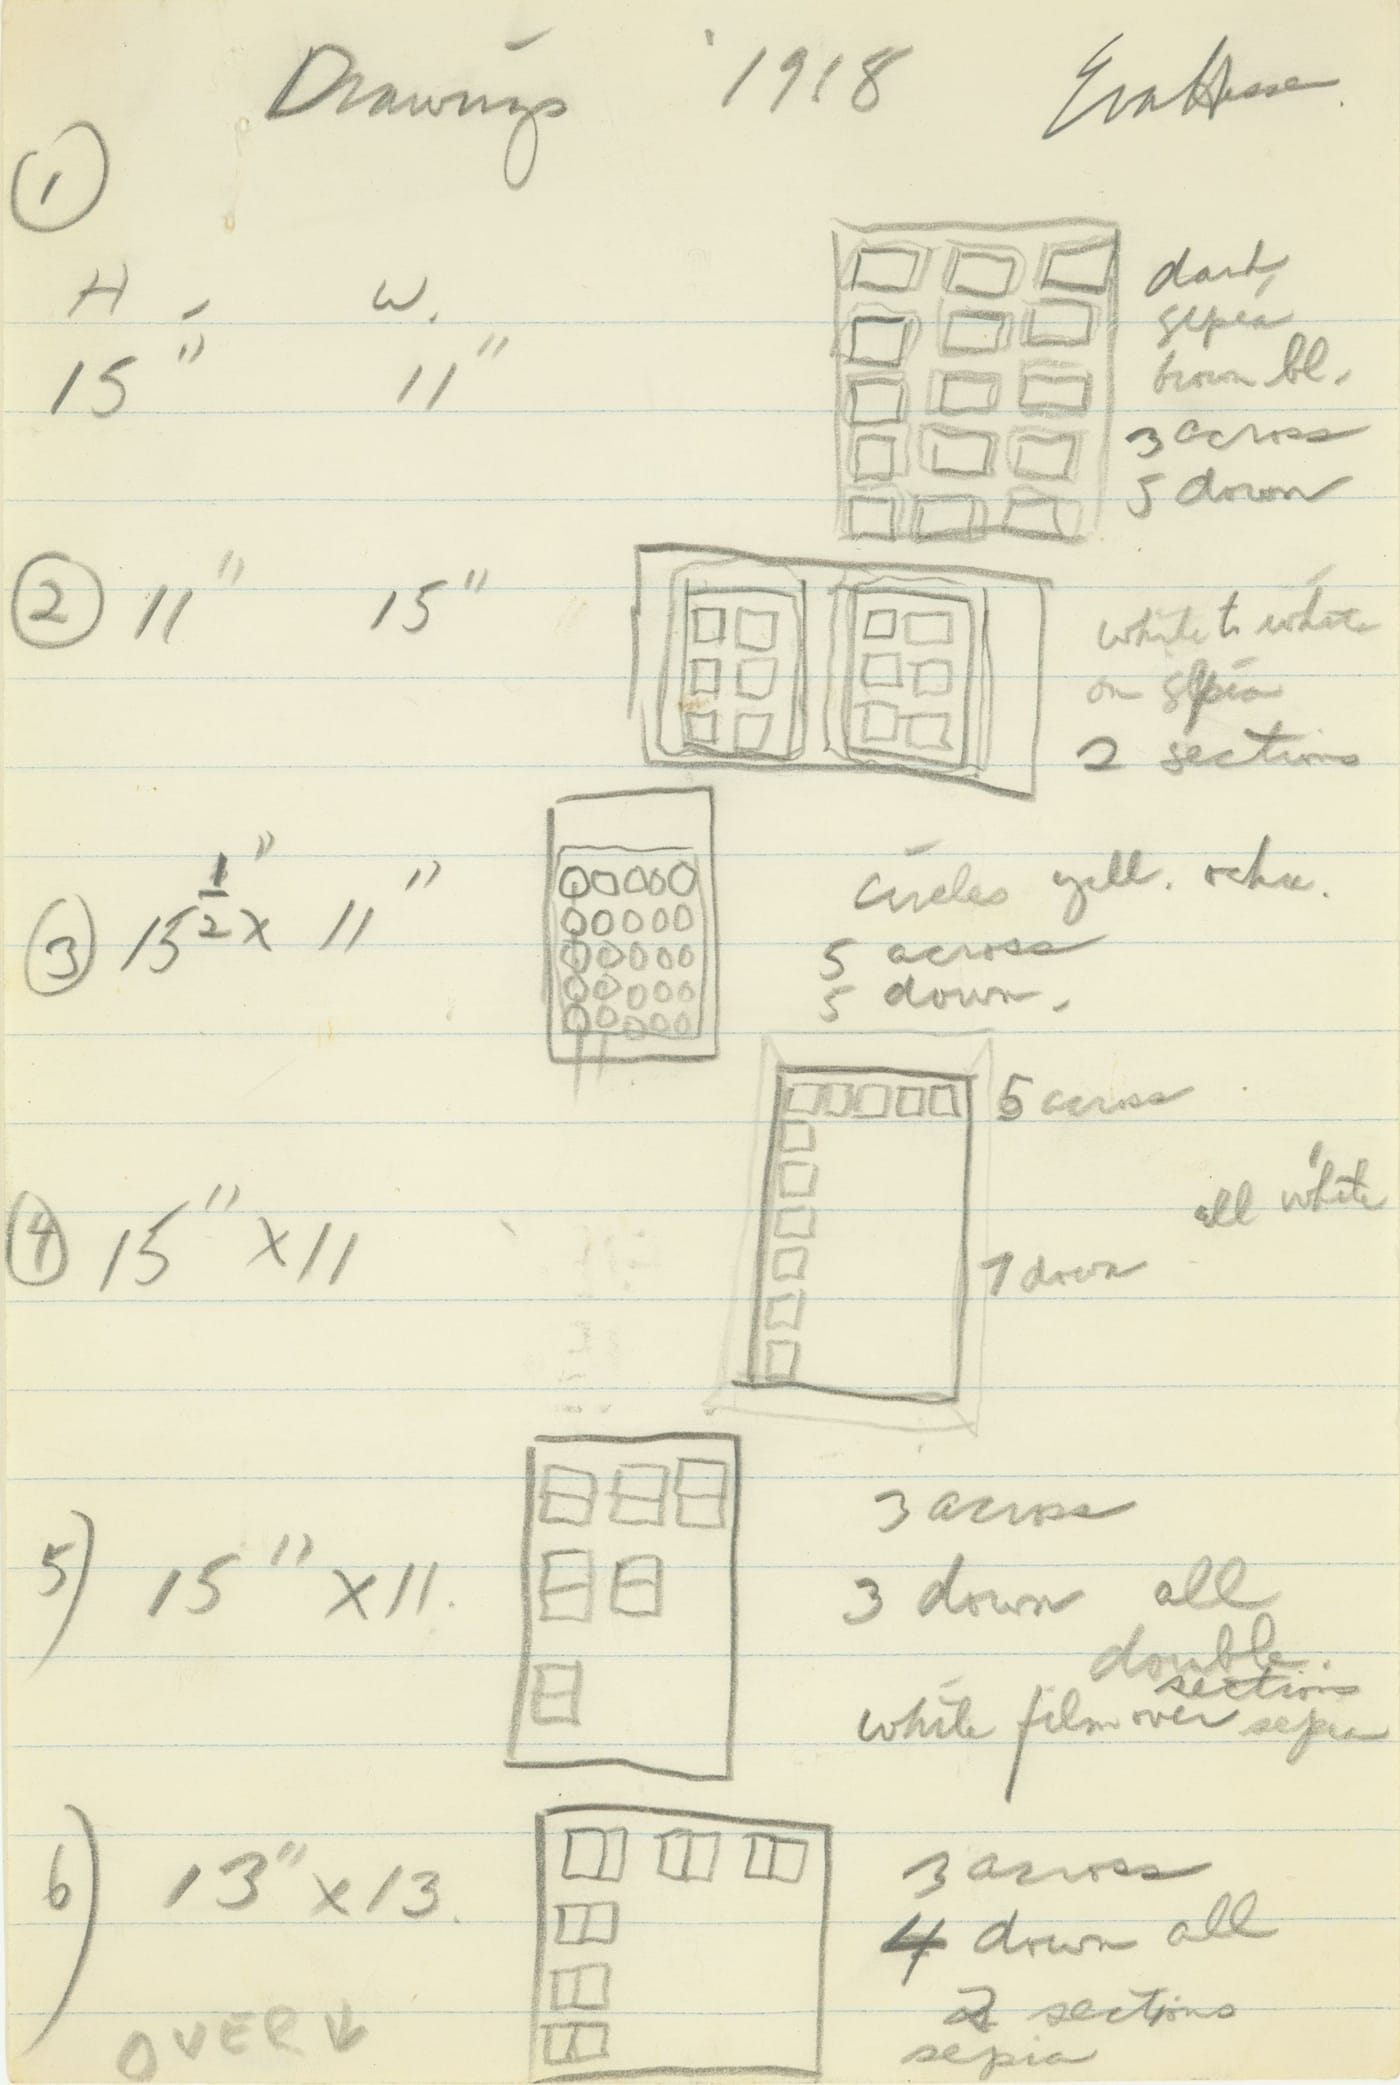 Drawings '1918 Eva Hesse.
①
H W.
15" 11"
dark,
sepia
brown bl.
3 across
5 down
② 11" 15"
white to white
on sepia
2 sections
③ 15 1/2" x 11"
circles yell. ochre.
5 across
5 down.
5 across
④ 15" x 11
all white
7 down
5) 15" x 11.
3 across
3 down all
double.
sections
white film over sepia
6) 13" x 13.
3 across
4 down all
2 sections
sepia
OVER ↓